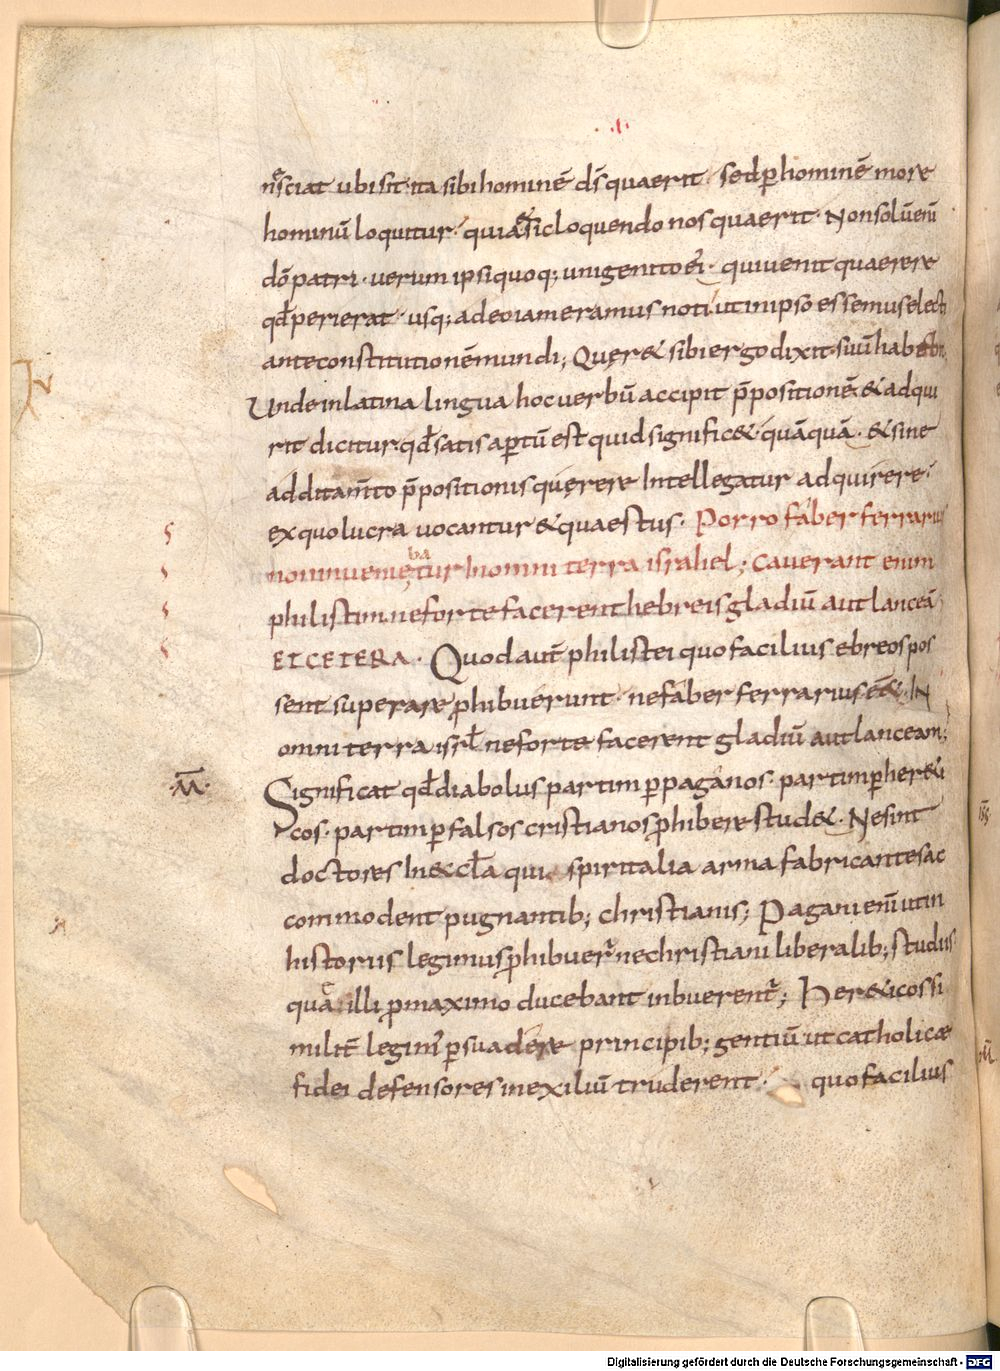 nesciat ubi sit. ita sibi hominē ds̄ quaerit. sed ꝑ hominē more
hominū loquitur. quia & sic loquendo nos quaerit. Non solū eni
dō patri. uerum ipsi quoq; unigenito ei. qui uenit quaerere
qđ perierat. usq; adeo iam eramus noti ut in ipso essemus electi
ante constitutionē mundi; Quęr& sibi ergo dixit. suū
Unde in latina lingua hoc uerbū accipit p̄positionē & adqui
rit dicitur. qđ satis aꝑtū est quid signific&. quāquā. & sine
additam̄to p̄positionis quęrere Intellegatur adquirere.
ex quo lucra uocantur & quaestus. Porro faber ferrarius
non inueniębatur In omni terra israhel; Cauerant enim
philistim. ne forte facerent hebrei gladiū aut lanceā
ETCETERA. Quod aut̄ philistei quo facilius ebreos pos
sent superare ꝓhibuerunt. ne faber ferrarius ēē&. IN
omni terra isrl̄ ne forte facerent gladiū aut lanceam;
Significat qđ diabolus partim ꝑ paganos. partim ꝑ her&i
cos. partim ꝑ falsos cristianos ꝓhibere stud&. Ne sint
doctores In &cl̄a qui spiritalia arma fabricantes ac
commodent pugnantib; christianis; Pagani enī ut in
historiis legimus ꝓhibuer̄ ne christiani liberalib; studiis
quā illi ꝓ maximo ducebant inbuerent̄; Her&icos si
milit̄ legim' ꝑsuadere principib; gentiū ut catholicae
fidei defensores in exiliū truderent. quo facilius
Digitalisierung gefördert durch die Deutsche Forschungsgemeinschaft - DFG